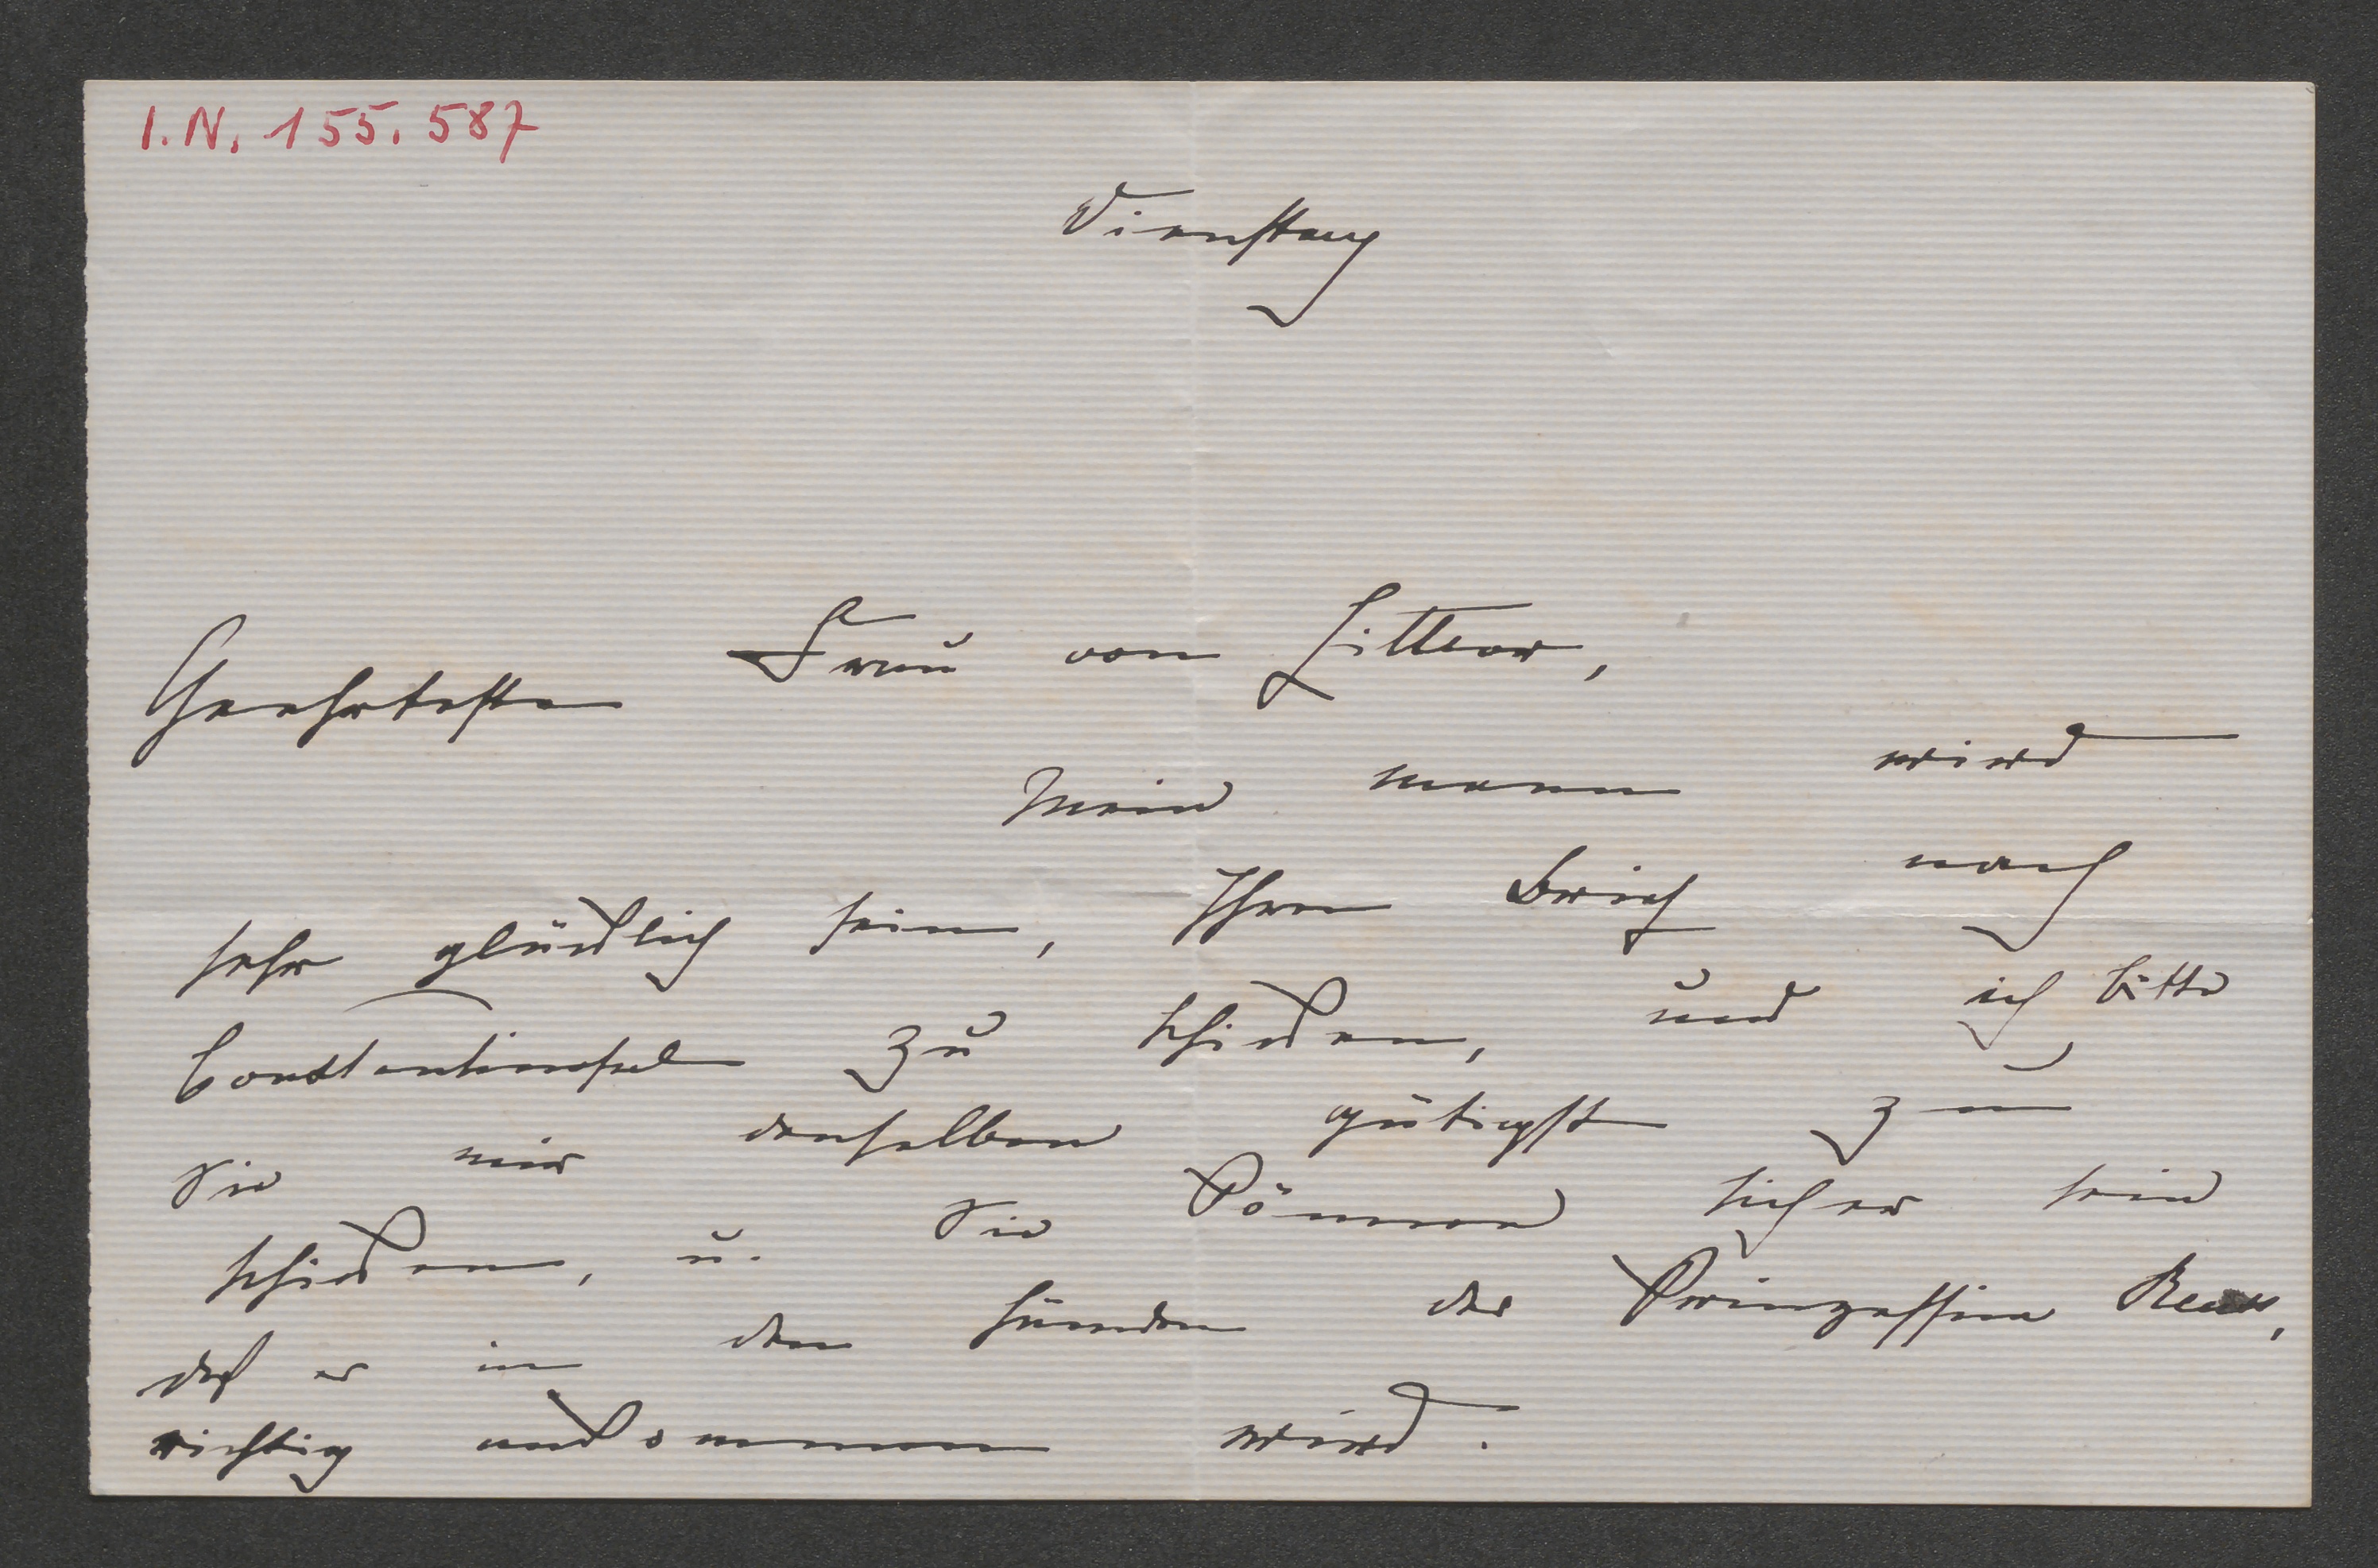 I.N. 155.587
Dienstag
Geehrteste Frau von Littrow,
Mein Mann wird
sehr glücklich sein, Ihren Brief nach
Constantinopel zu schicken, und ich bitte
Sie mir denselben gütigst zu
schicken, u. Sie können sicher sein
daß er in den Händen der Prinzessin Reuss,
richtig ankommen wird.